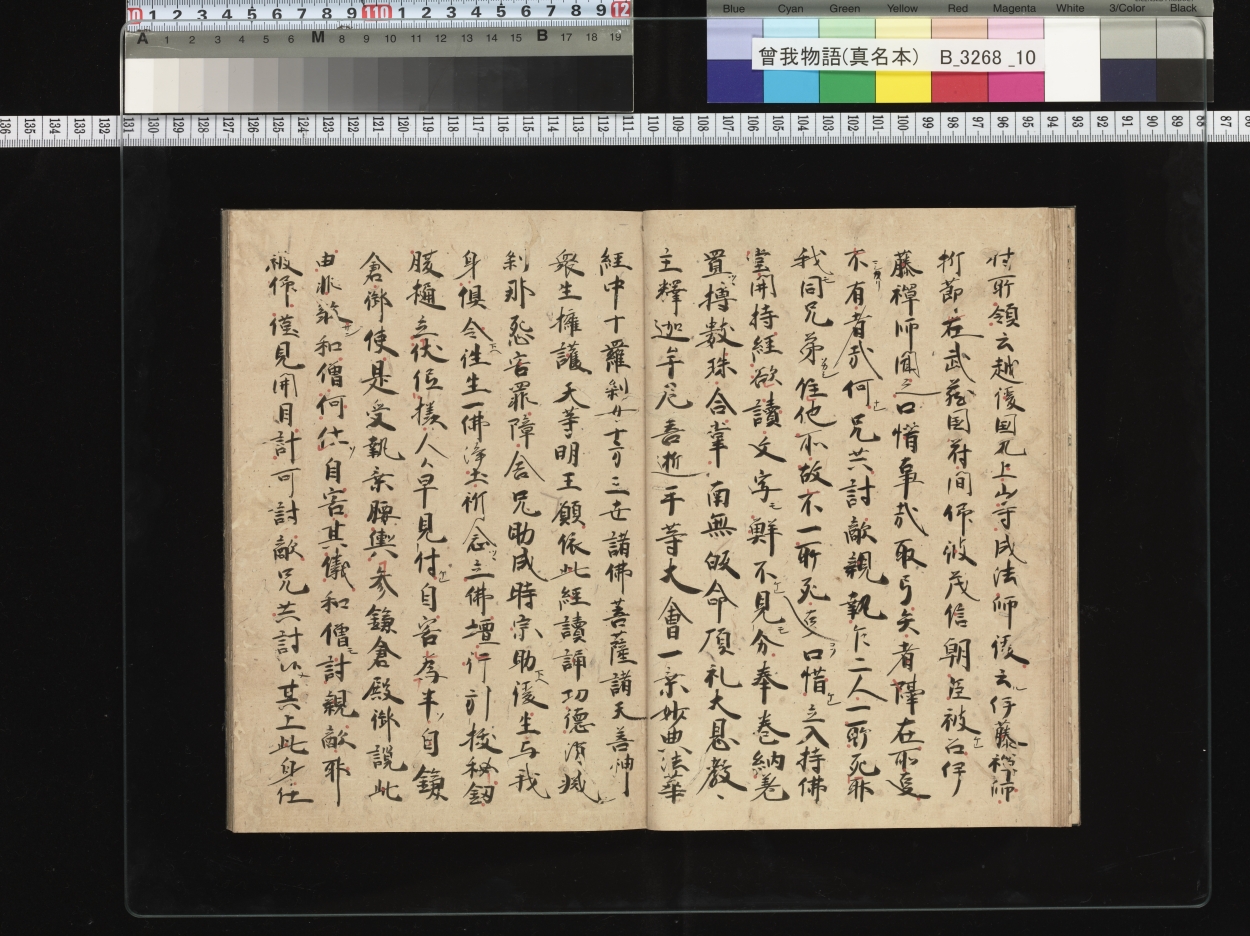 Blue Cyan Green Yellow Red Magenta White 3/Color Black
曾我物語(真名本) B_3268_10
付所領云越後国九上山寺成法師後云伊藤禅師
折節在武蔵国府間仰彼茂信朝臣被召伊
藤禅師聞之口惜事哉取弓矢者陣在所追
不有者哉何兄共討敵親執乍二人一所死耶
我同兄弟住他所故不一所死口惜立入持佛
堂開持経欲讀文字鮮不見分奉巻納巻
置摶数珠合掌南無皈命頂礼大恩教
主釋迦牟尼善逝平等大會一乗妙典法華
経中十羅刹女十方三世諸佛菩薩諸天善神
衆生擁護天等明王願依此経讀誦功徳消滅
刹那悉害罪障舎兄助成時宗助後生与我
身倶令往生一佛浄土祈念立佛壇行引抜秘釼
腹掻立伏位様人〻早見付自害為半自鎌
倉御使是受執乗腰輿参鎌倉殿御説此
由非和僧何仕自害其儀和僧討親敵耶
被仰僅見開目計可討敵兄共討其上此身仕